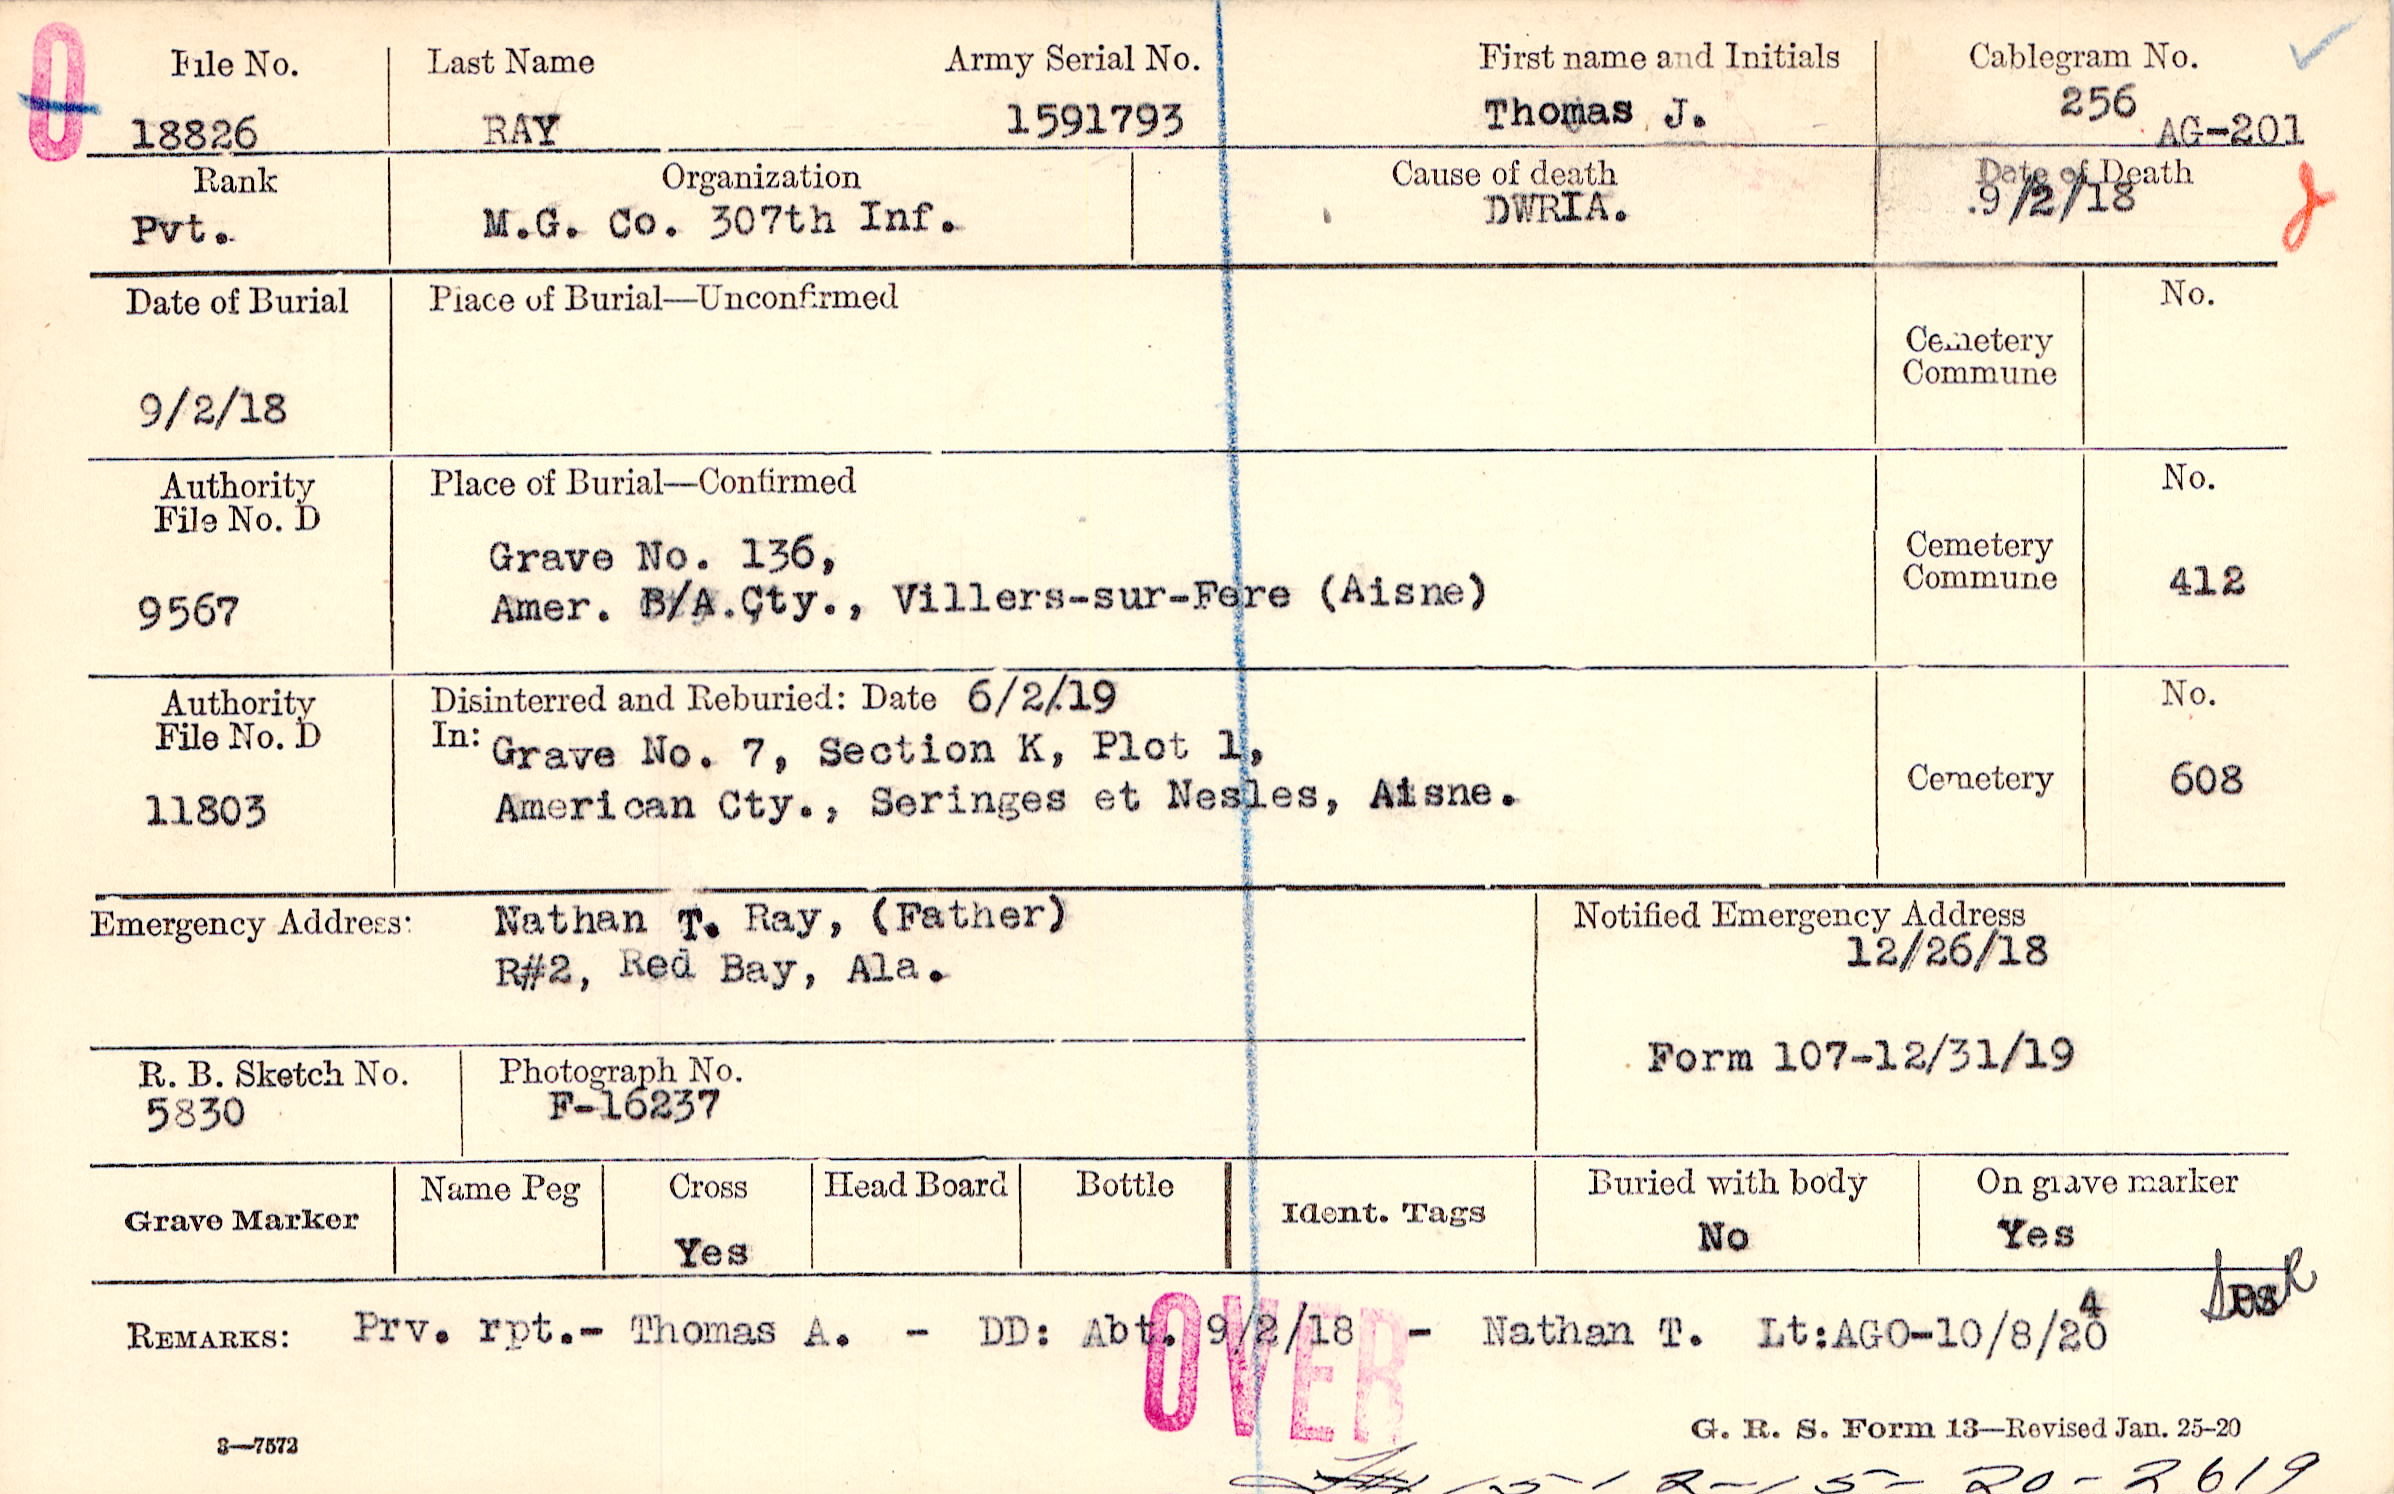 O
File No. Last Name Army Serial No. First name and Initials Cablegram No.
18826 RAY 1591793 Thomas J. 256 AG-201
Rank Organization Cause of death Date of Death
Pvt. M.G. Co. 307th Inf. DWRIA. 9/2/18
Date of Burial Place of Burial—Unconfirmed No.
Cemetery
Commune
9/2/18
Authority Place of Burial—Confirmed No.
File No. D
Grave No. 136, Cemetery
9567 Amer. B/A.Cty., Villers-sur-Fere (Aisne) Commune 412
Authority Disinterred and Reburied: Date 6/2/19 No.
File No. D In: Grave No. 7, Section K, Plot 1,
11803 American Cty., Seringes et Nesles, Aisne. Cemetery 608
Emergency Address: Nathan T. Ray, (Father) Notified Emergency Address
R#2, Red Bay, Ala. 12/26/18
Form 107-12/31/19
R. B. Sketch No. Photograph No.
5830 F-16237
Grave Marker Name Peg Cross Head Board Bottle Ident. Tags Buried with body On grave marker
Yes No Yes
REMARKS: Prv. rpt.- Thomas A. - DD: Abt. 9/2/18 - Nathan T. Lt:AGO-10/8/20
4
OVER
3—7572 G. R. S. Form 13—Revised Jan. 25-20
15-20-2619